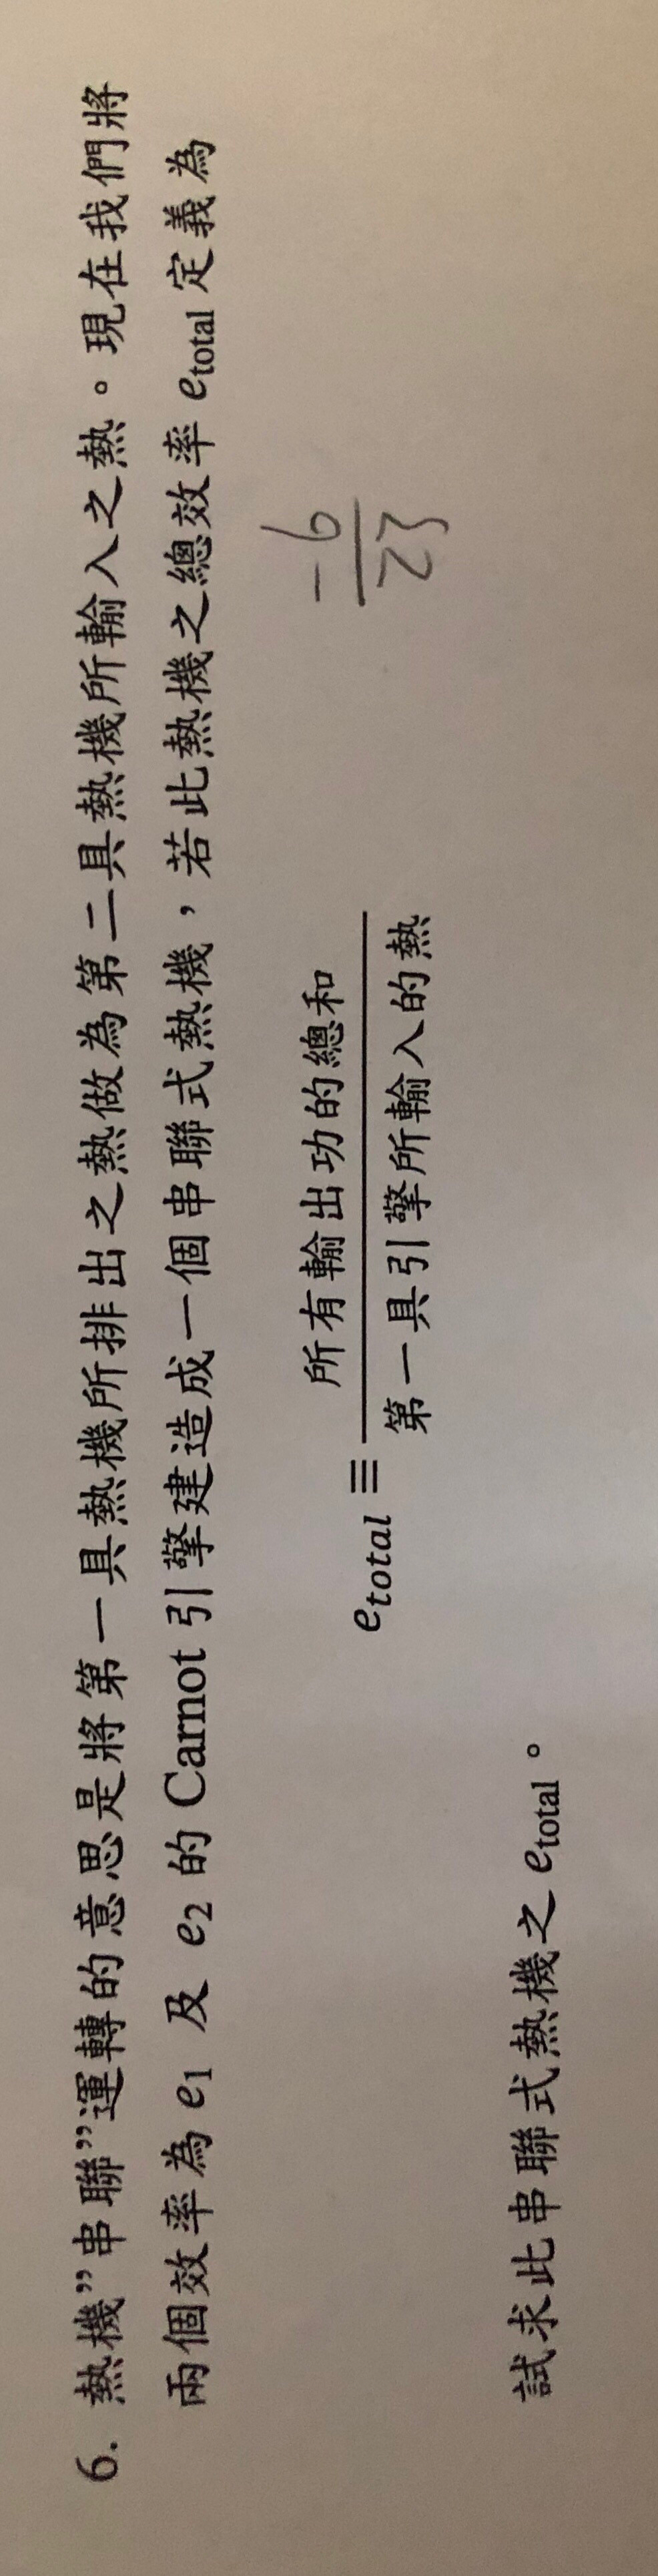 6. 熱機”串聯”運轉的意思是將第一具熱機所排出之熱做為第二具熱機所輸入之熱。現在我們將
兩個效率為 e1 及 e2 的 Carnot 引擎建造成一個串聯式熱機，若此熱機之總效率 etotal 定義為
etotal ≡ 所有輸出功的總和
第一具引擎所輸入的熱
試求此串聯式熱機之 etotal。